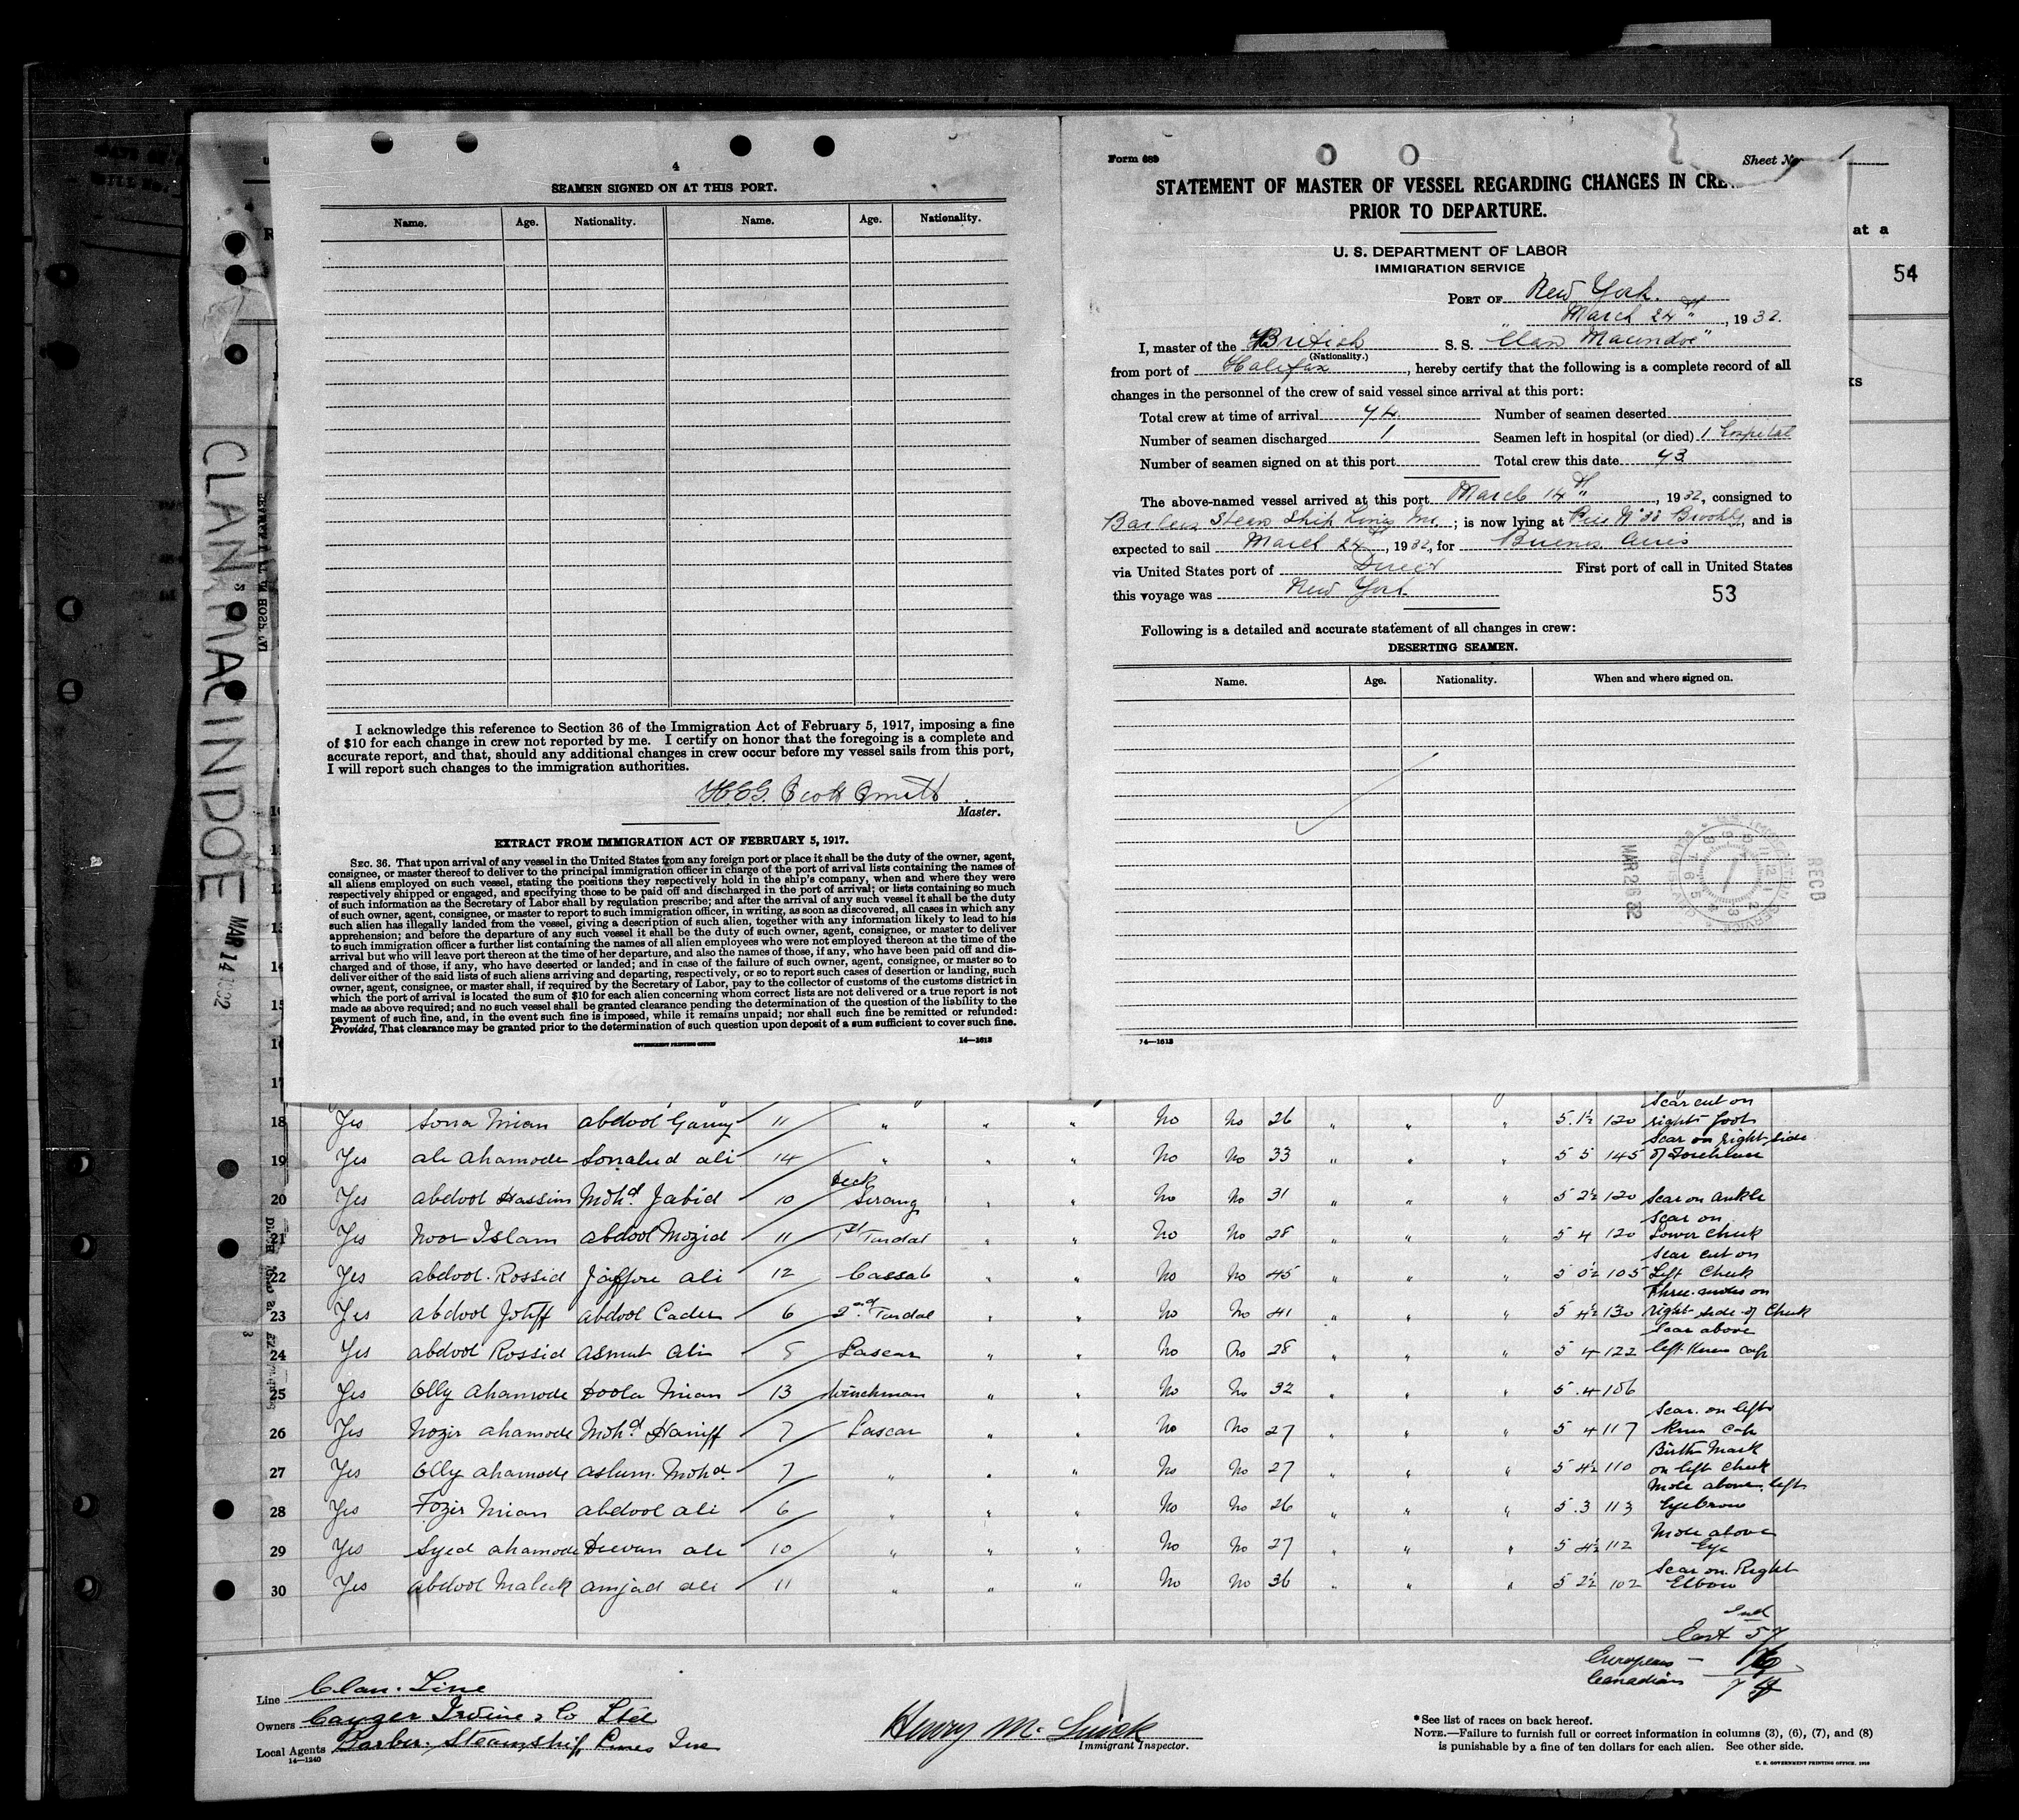 4
SEAMEN SIGNED ON AT THIS PORT.
Name. Age. Nationality. Name. Age. Nationality.
I acknowledge this reference to Section 36 of the Immigration Act of February 5, 1917, imposing a fine
of $10 for each change in crew not reported by me. I certify on honor that the foregoing is a complete and
accurate report, and that, should any additional changes in crew occur before my vessel sails from this port,
I will report such changes to the immigration authorities.
Scott Smith
Master.
EXTRACT FROM IMMIGRATION ACT OF FEBRUARY 5, 1917.
SEC. 36. That upon arrival of any vessel in the United States from any foreign port or place it shall be the duty of the owner, agent,
consignee, or master thereof to deliver to the principal immigration officer in charge of the port of arrival lists containing the names of
all aliens employed on such vessel, stating the positions they respectively hold in the ship's company, when and where they were
respectively shipped or engaged, and specifying those to be paid off and discharged in the port of arrival; or lists containing so much
of such information as the Secretary of Labor shall by regulation prescribe; and after the arrival of any such vessel it shall be the duty
of such owner, agent, consignee, or master to report to such immigration officer, in writing, as soon as discovered, all cases in which any
such alien has illegally landed from the vessel, giving a description of such alien, together with any information likely to lead to his
apprehension; and before the departure of any such vessel it shall be the duty of such owner, agent, consignee, or master to deliver
to such immigration officer a further list containing the names of all alien employees who were not employed thereon at the time of the
arrival but who will leave port thereon at the time of her departure, and also the names of those, if any, who have been paid off and dis-
charged and of those, if any, who have deserted or landed; and in case of the failure of such owner, agent, consignee, or master so to
deliver either of the said lists of such aliens arriving and departing, respectively, or so to report such cases of desertion or landing, such
owner, agent, consignee, or master shall, if required by the Secretary of Labor, pay to the collector of customs of the customs district in
which the port of arrival is located the sum of $10 for each alien concerning whom correct lists are not delivered or a true report is not
made as above required; and no such vessel shall be granted clearance pending the determination of the question of the liability to the
payment of such fine, and, in the event such fine is imposed, while it remains unpaid; nor shall such fine be remitted or refunded:
Provided, That clearance may be granted prior to the determination of such question upon deposit of a sum sufficient to cover such fine.
GOVERNMENT PRINTING OFFICE 14—1613
Form 689 Sheet No. 1
STATEMENT OF MASTER OF VESSEL REGARDING CHANGES IN CREW
PRIOR TO DEPARTURE.
U. S. DEPARTMENT OF LABOR
IMMIGRATION SERVICE
PORT OF New York.
March 24th, 1932.
I, master of the British S. S. "Clan Macindoe"
(Nationality.)
from port of Halifax, hereby certify that the following is a complete record of all
changes in the personnel of the crew of said vessel since arrival at this port:
Total crew at time of arrival 74. Number of seamen deserted
Number of seamen discharged 1 Seamen left in hospital (or died) 1 Hospital
Number of seamen signed on at this port Total crew this date 73
The above-named vessel arrived at this port March 14th, 1932, consigned to
Barber Steam Ship Lines Inc.; is now lying at Pier No 33 Brookly, and is
expected to sail March 24th, 1932, for Buenos Aires
via United States port of Direct First port of call in United States
this voyage was New York
53
Following is a detailed and accurate statement of all changes in crew:
DESERTING SEAMEN.
Name. Age. Nationality. When and where signed on.
MAR 26 32
RECD
14—1613
at a
54
CLAN MACINDOE
MAR 14 1932
18 Yes Sona Mian abdool Ganey 11 " " " No No 26 " " " 5 1½ 120 Scar cut on right foot
19 Yes ali ahamode Sonalud ali 14 " " " No No 33 " " " 5 5 145 Scar on right side of Forehead
20 Yes abdool Hassim Mohd Jabid 10 Deck Serang " " No No 31 " " " 5 2½ 120 Scar on ankle
21 Yes Noor Islam abdool Mozid 11 1st Tindal " " No No 28 " " " 5 4 120 Scar on Lower Cheek
22 Yes abdool Rossid Jaffore ali 12 Cassab " " No No 45 " " " 5 0½ 105 Scar cut on Left Cheek
23 Yes abdool Jotiff abdool Cader 6 2nd Tindal " " No No 41 " " " 5 4½ 130 Three moles on right side of Cheek
24 Yes abdool Rossid asmut ali 5 Lascar " " No No 28 " " " 5 4 122 Scar above left Knee cap
25 Yes Olly ahamode Doola Mian 13 Winchman " " No No 32 " " " 5 4 106
26 Yes Nozir ahamode Mohd Haniff 7 Lascar " " No No 27 " " " 5 4 117 Scar on left Knee Cap
27 Yes Olly ahamode aslum Mohd 7 " " " No No 27 " " " 5 4½ 110 Birth Mark on left Cheek
28 Yes Fozir Mian abdool ali 6 " " " No No 26 " " " 5 3 113 Mole above left Eyebrow
29 Yes Syed ahamode Dewan ali 10 " " " No No 27 " " " 5 4½ 112 Mole above Eye
30 Yes abdool Maleek amjad ali 11 " " " No No 36 " " " 5 2½ 102 Scar on Right Elbow
East Ind 57
Europeans — 16
Canadians
74
Line Clan Line
Owners Cayzer Irvine & Co Ltd
Local Agents Barber Steamship Lines Inc
14—1240
Immigrant Inspector.
*See list of races on back hereof.
NOTE.—Failure to furnish full or correct information in columns (3), (6), (7), and (8)
is punishable by a fine of ten dollars for each alien. See other side.
U. S. GOVERNMENT PRINTING OFFICE